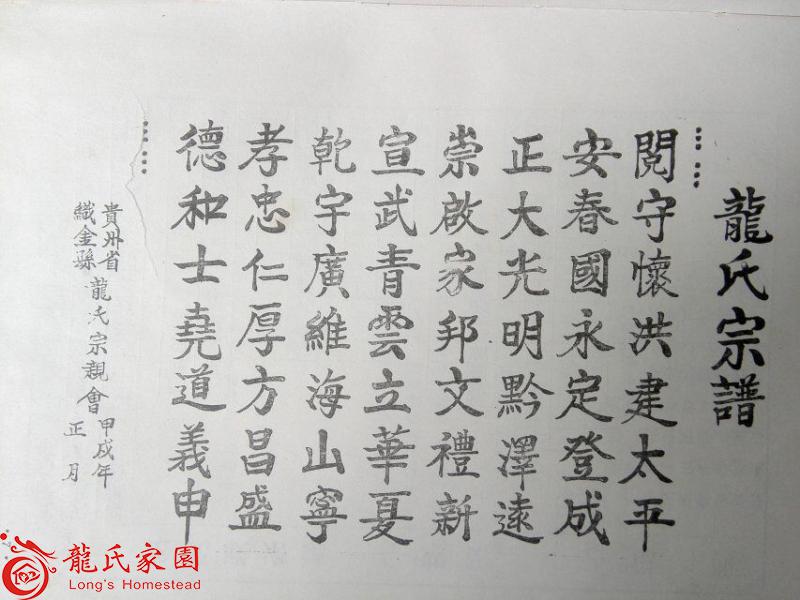 龍氏宗譜
……
閱守懷洪建太平
安春國永定登成
正大光明黔澤遠
崇啟家邦文禮新
宣武青雲立華夏
乾宇廣維海山寧
孝忠仁厚方昌盛
德和士堯道義申
……
貴州省
織金縣
龍氏宗親會
甲戌年
正月
龍氏家園
Long's Homestead